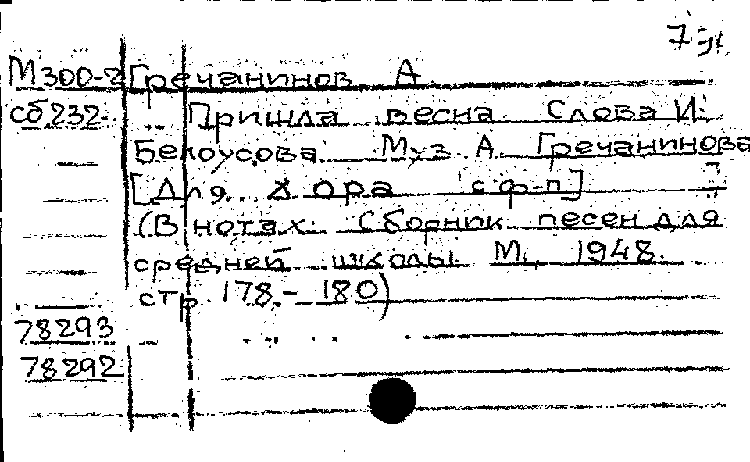 М300-2 Гречанинов А
сб232. Пришла весна Слова И.
Белоусова Муз А Гречанинова
[Для хора с ф-п]
(В нотах: Сборник песен для
средней школы М., 1948.
стр 178.-180)
78293
78292